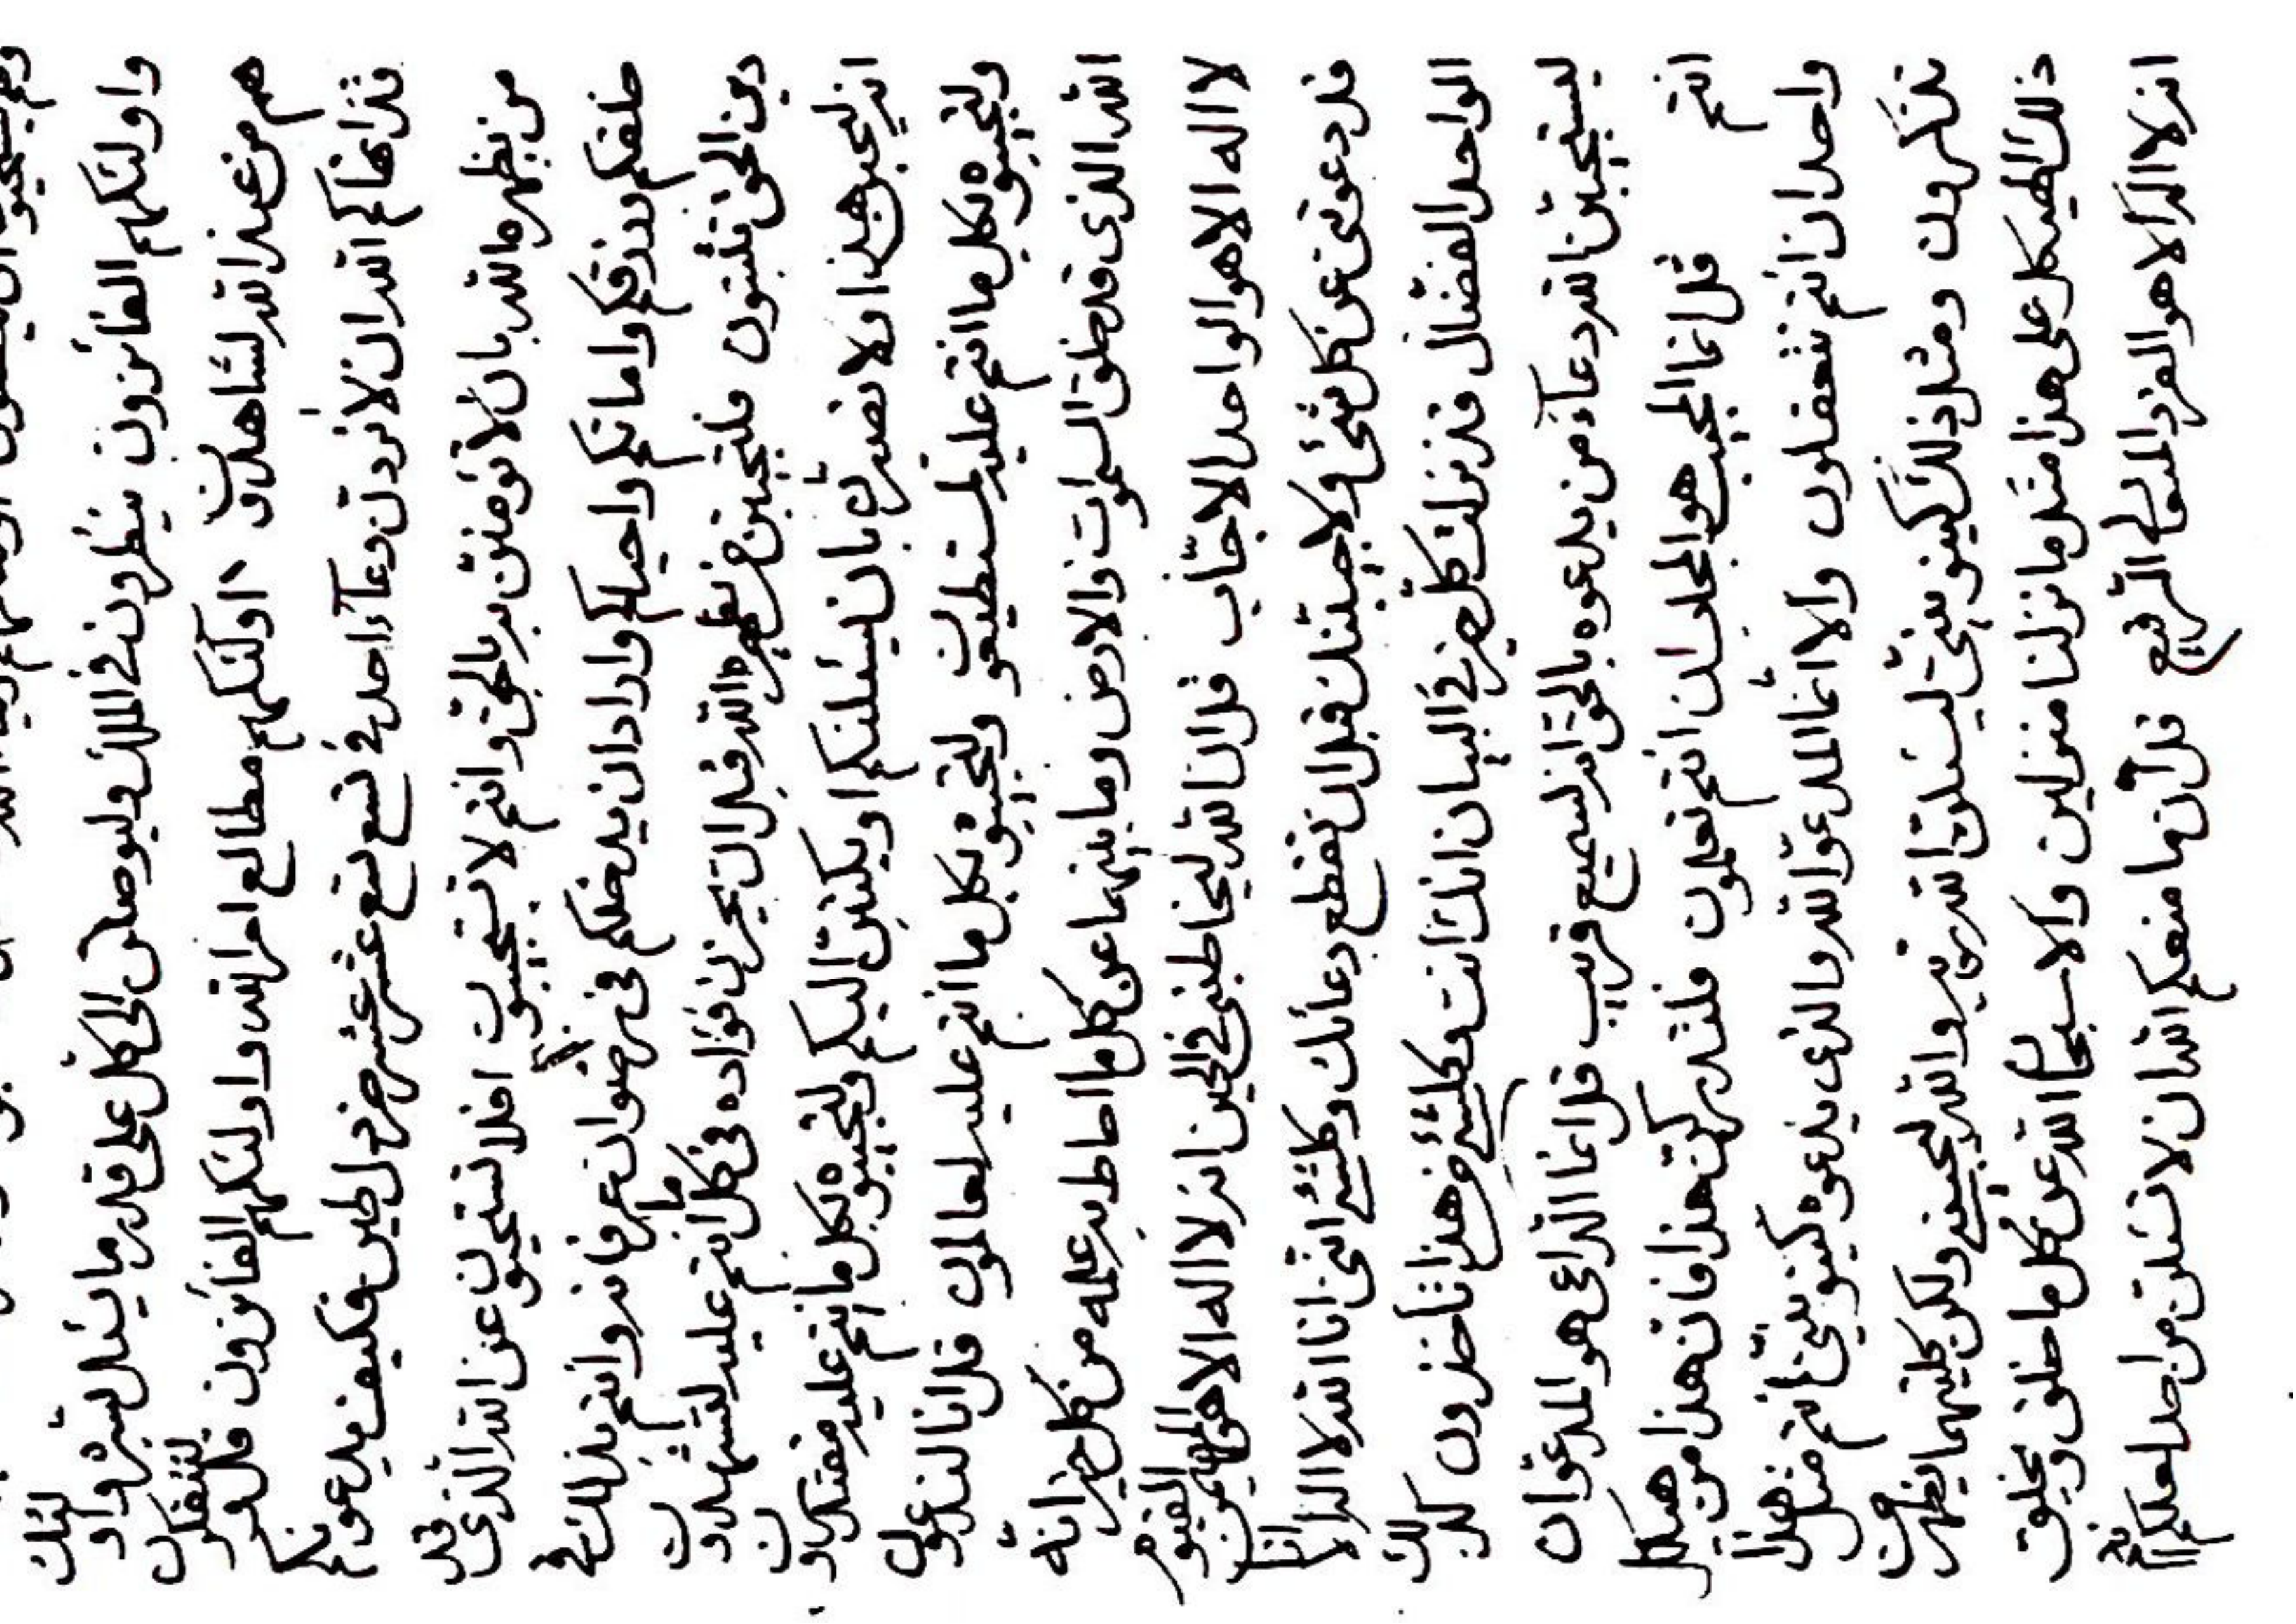 واولئكهم الفائزون ينظرون في الملك وليوصلن الى كل على قدر ما يسئل لبشر واو لئك
هم من عند الله لشاهدون اولئكهم مطالع امر الله واولئكهم الفائزون قل لو لتتفكرون
قد انهاكم الله ان لا تردن دعآء احد في تسع تسع عشر عشر خردل طين فكيف يدعونكم
من يظهره الله بان لا تؤمنن به بالحق وانتم لا تستجيبون افلا تستحيون عن الله الذي قد
خلقكم ورزقكم واماتكم واحياكم واراد ان يدخلكم في رضوان عرفانه وانتم بذلك في
دين الحق تثبتون فلتجيبن من يظهره الله قبل ان يحزن فؤاده في كل ما انتم عليه لتشهدون
هذا ولا تصبرن بان يسئلنكم او يكتبن اليكم ولتجيبوه بكل ما انتم عليه مقتدرون
ولتجيبوه بكل ما انتم عليه لمستطيعون ولتجيبوه بكل ما انتم عليه لعالمون قل انا لندعون
الله الذي قد خلق السموات والارض وما بينهما عن كل ما احاط به علمه من كل خير انه
لا اله الا هو الواحد الاجّاب قل ان الله ليخاطبني في الحين انه لا اله الا هو المهيمن القيوم
قد دعوتني عن كل شئ ولاجيبنك قبل ان تقطع دعائك وكلشئ انني انا الله لا اله الا انا
الواحد الفضال قد نزلت كل خير في البيان انك انت وكلشئ من هذا تأخذون كذلك
ليستجيبن الله دعآء من يدعوه بالحق انه لسميع قريب قل انما الداعي هو المدعو ان
انتم قل انما المجيب هو المجاب ان انتم تعلمون فلتدركن هذا فان هذا من هيكل
واحد ان انتم تتعقلون والا انما المدعو الله والذي يدعوه كينونيتي انتم مثل هذا
تذكرون ومثل ذلك كينونيتي ليسئلن الله ربه والله ليجيبنه ولكن كليهما يظهرن من
ذلك الهيكل على هذا مثل ما نزلنا منزلين والا سبحان الله عن كل ما خلق ويخلق
انه لا اله الا هو الفرد الرفيع قل منعكم الله ان لا تسئلن من احد لعلكم